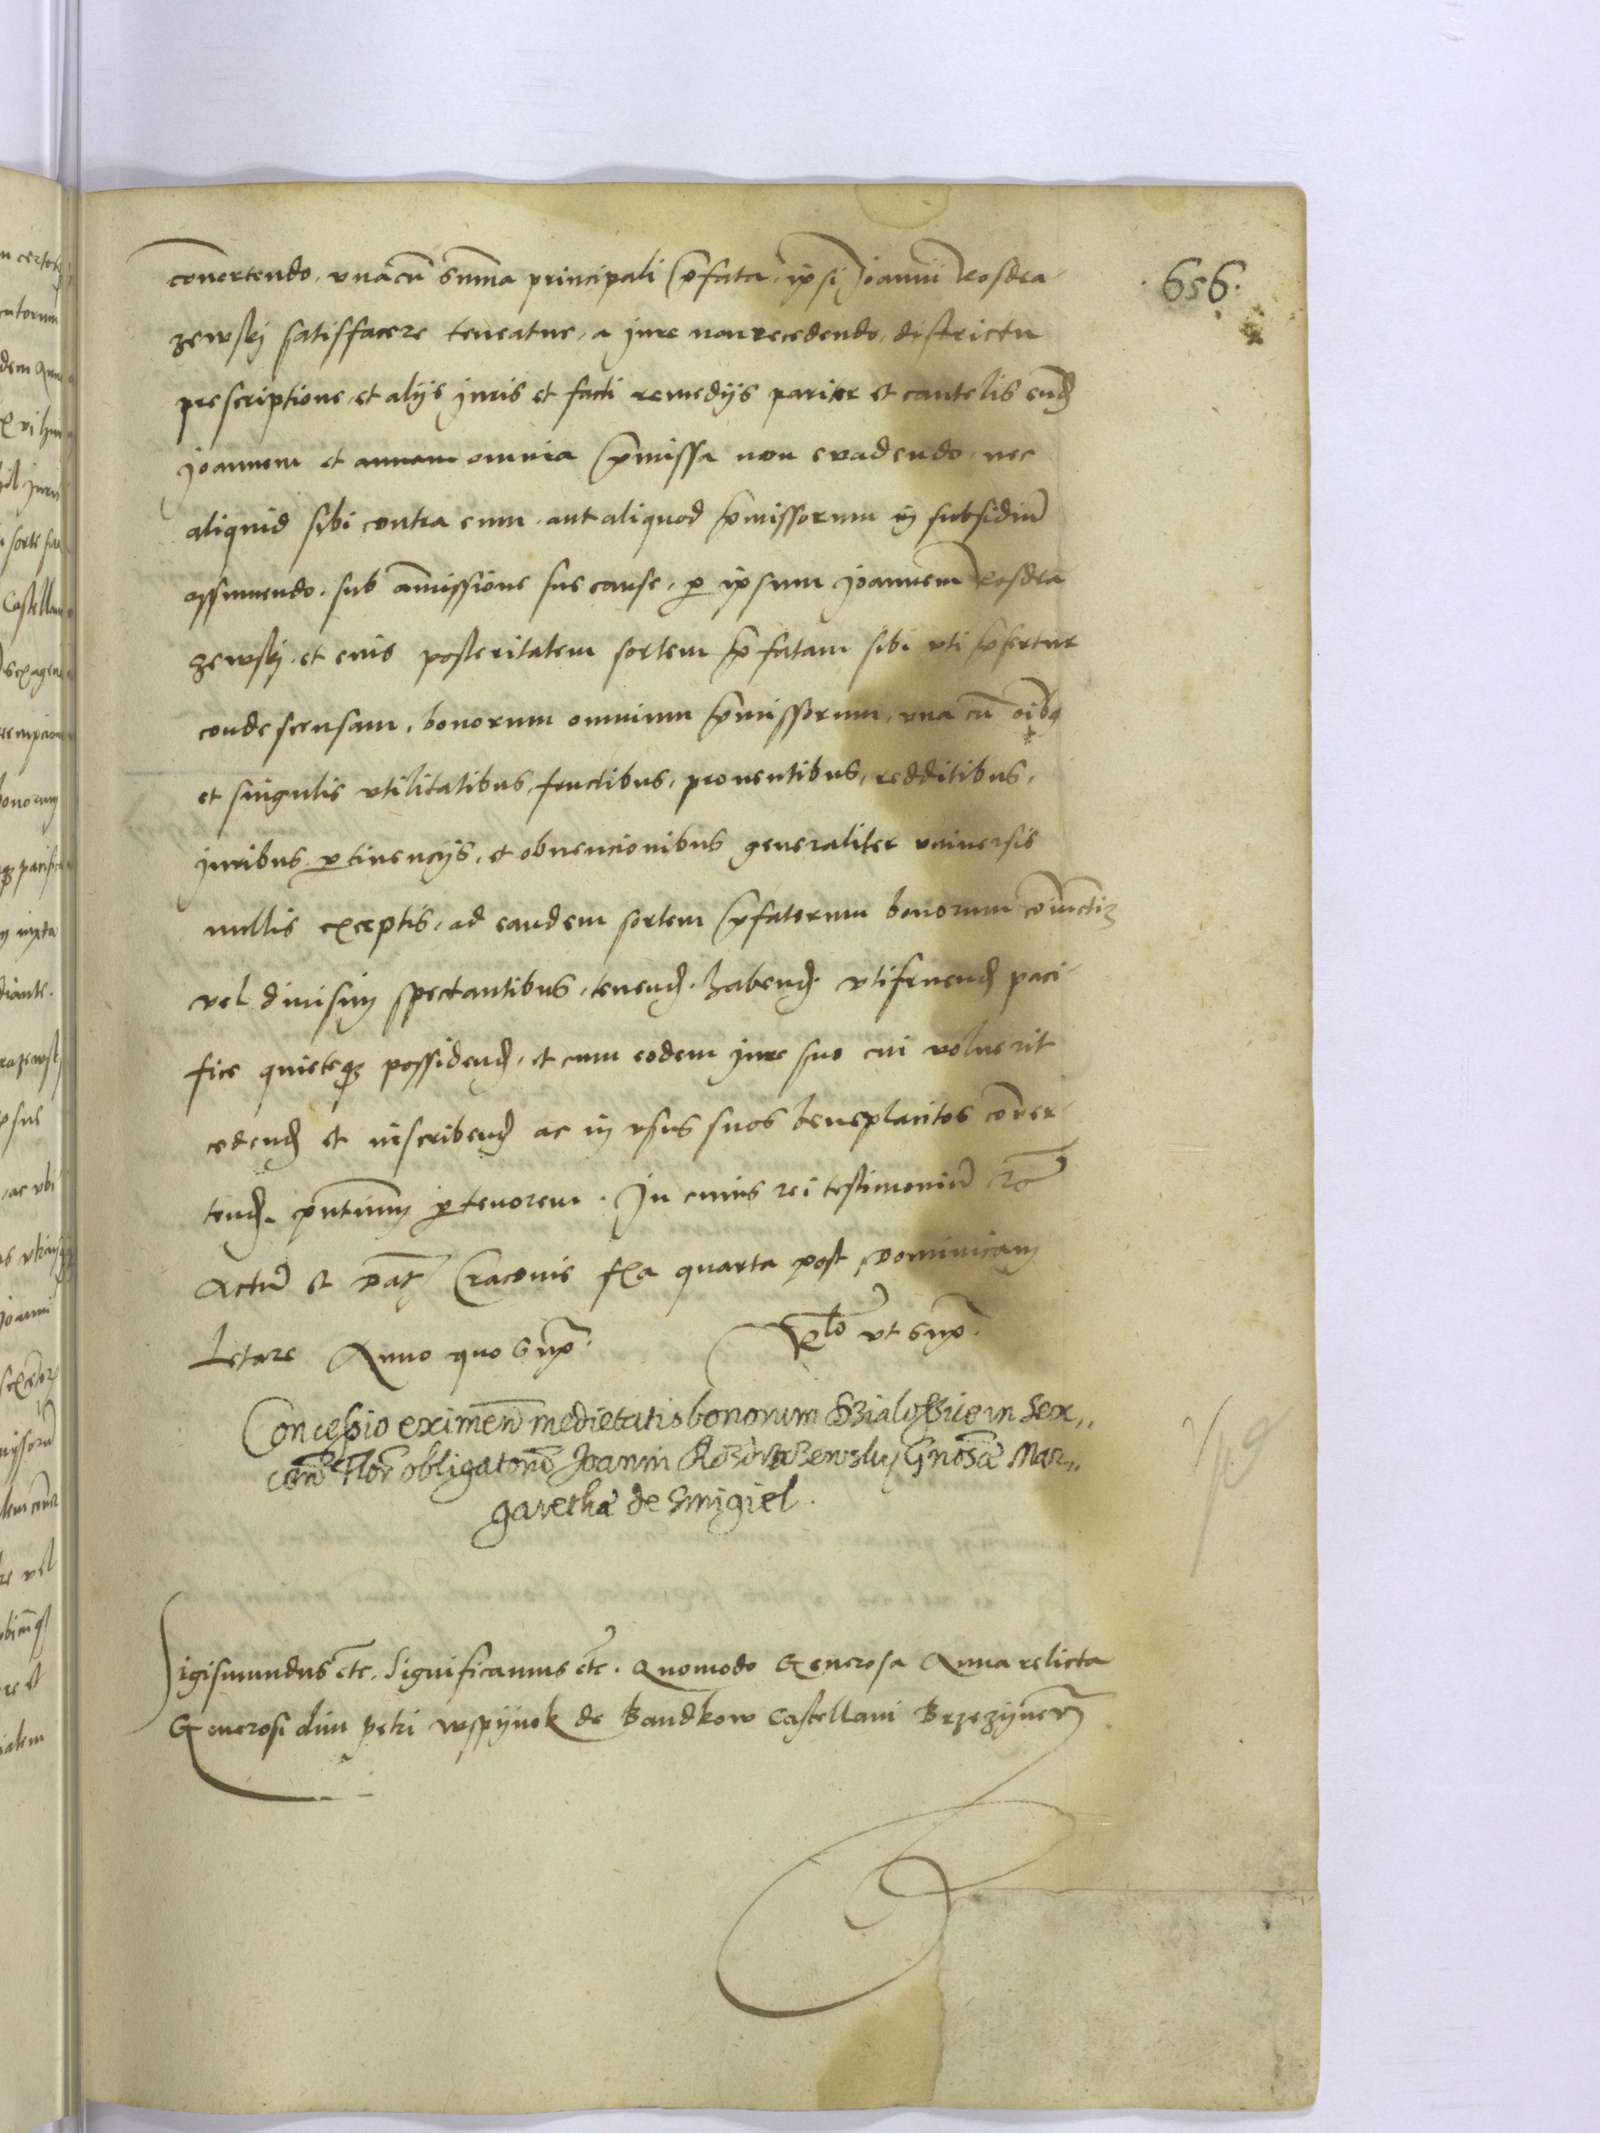 656.
convertendo, vnacũ summa principali p̃fata, ipsi Joanni Rosdra
zewskj satisffacere teneatur, a jure non recedendo, districtu
prescriptione, et alijs juris et facti remedijs pariter et cautelis eund
Joannem et annam omnia p̃missa non evadendo, nec
aliquid sibi contra eum, aut aliquod p̃missorum in subsidiũ
assumendo, sub amissione sue cause, p ipsum Joannem Rosdra
zewskj et eius posteritatem sortem p̃fatam sibi vti p̃fertur
condescensam, bonorum omnium p̃missorum, vna cũ oĩbq
et singulis vtilitatibus, fructibus, proventibus, redditibus,
juribus, ptinencijs, et obvencionibus generaliter vniversis
nullis exceptis, ad eandem sortem p̃fatorum bonorum cõiunctim
vel divisim spectantibus, tenend. habend. vtifruend paci-
fice quieteq possidend, et cum eodem jure suo cui voluerit
cedend et inscribend ac in vsus suos beneplacitos cõver-
tend. p̃ntium p tenorem. In cuius rei testimoniũ &c
Actũ et Dat Cracovie fxa quarta post Dominicam
Letare Anno quo sup̃.
Rlo vt sup̃.
Concessio eximen̄ medietatis bonorum Bialossliwe in Sex,,
cen̄ Flor̄ obligatorũ Joanni Rozdrazewsky Gnosæ Mar,,
garethæ de Smigiel.
Sigismundus etc. Significamus etc. Quomodo Generosa Anna relicta
Generosi olim petri wspijnek de Bandkow Castellani Brzezijnen̄